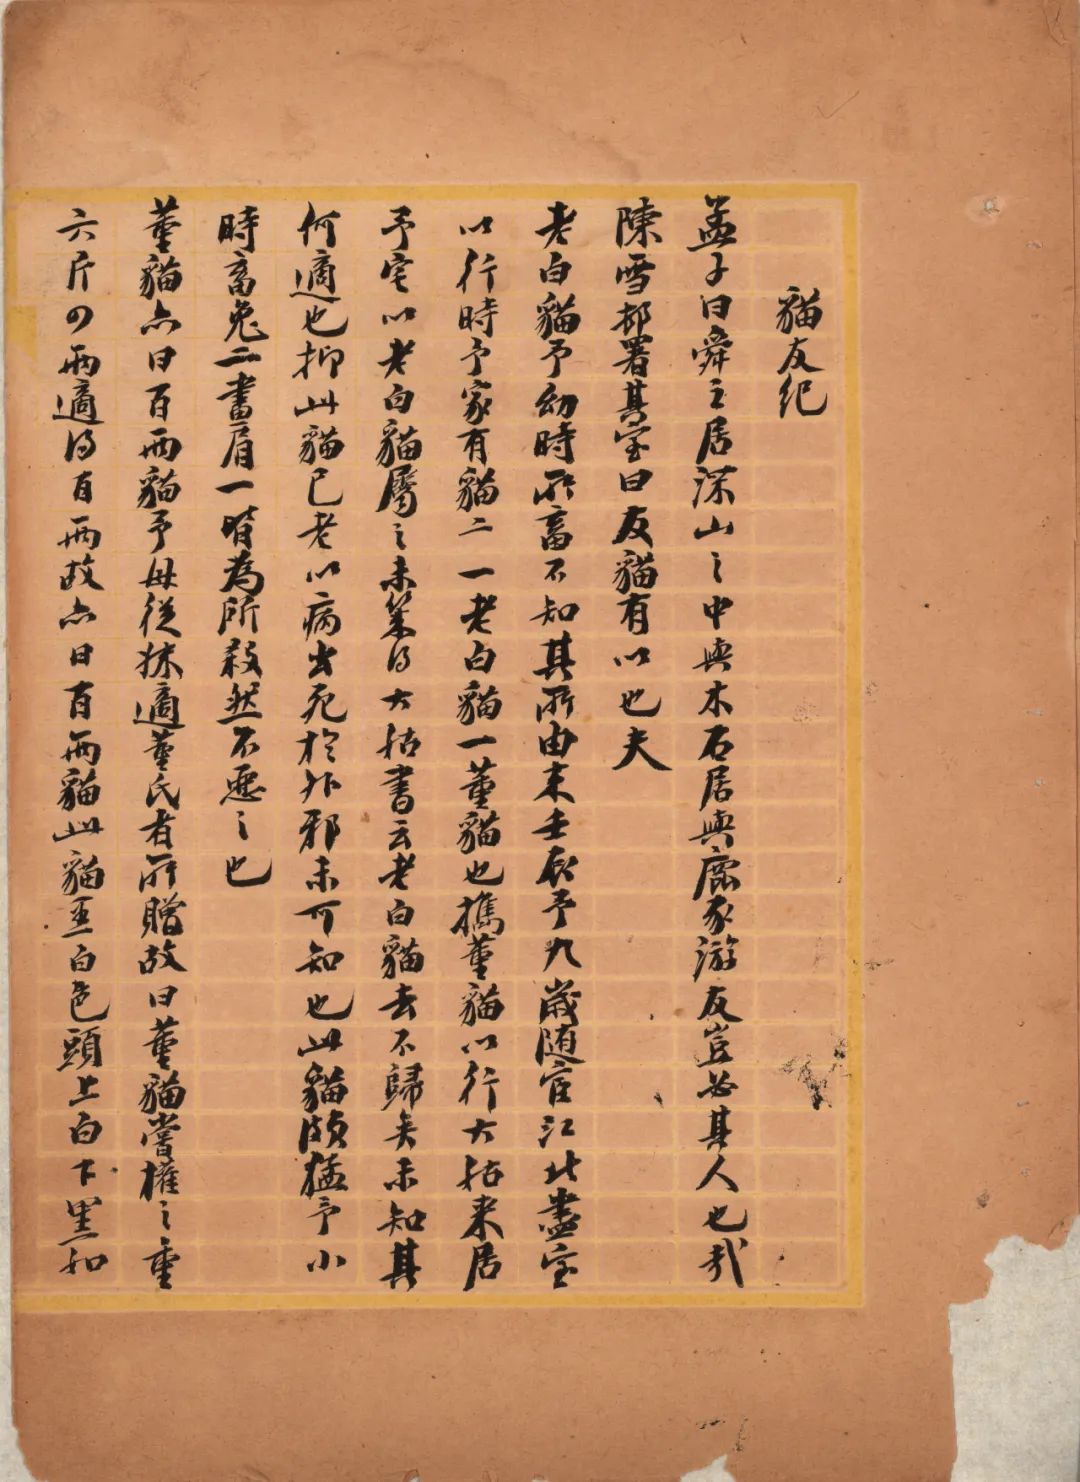 貓友紀
孟子曰舜之居深山之中與木石居與鹿豕游友豈必其人也哉
陳雪邨署其室曰友貓有以也夫
老白貓予幼時所畜不知其所由來壬辰予九歲隨宦江北盡室
以行時予家有貓二一老白貓一董貓也攜董貓以行大姑來居
予宅以老白貓屬之未幾得大姑書云老白貓去不歸矣未知其
何適也抑此貓已老以病出死於外邪未可知也此貓頗猛予小
時畜兔二畫眉一皆為所殺然不惡之也
董貓亦曰百兩貓予母從妹適董氏者所贈故曰董貓嘗權之重
六斤四兩適得百兩故亦曰百兩貓此貓玉白色頭上白下黑如